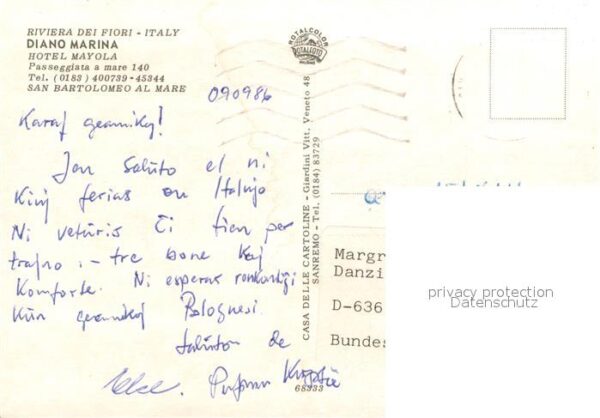 RIVIERA DEI FIORI - ITALY
DIANO MARINA
HOTEL MAYOLA
Passeggiata a mare 140
Tel. (0183) 400739-45344
SAN BARTOLOMEO AL MARE
ROTALCOLOR
ROTALFOTO
MILANO
090986
Karaj geamikoj!
Jen saluto el ni
kiuj ferias en Italujo
Ni veturis ĉi tien per
trajno - tre bone kaj
komforte. Ni esperas renkontiĝi
kun geamikoj Bolognesi.
Saluton de
CASA DELLE CARTOLINE - Giardini Vitt. Veneto 48
SANREMO - Tel. (0184) 83729
68333
Margr
Danzi
D-636
Bundes
privacy protection
Datenschutz